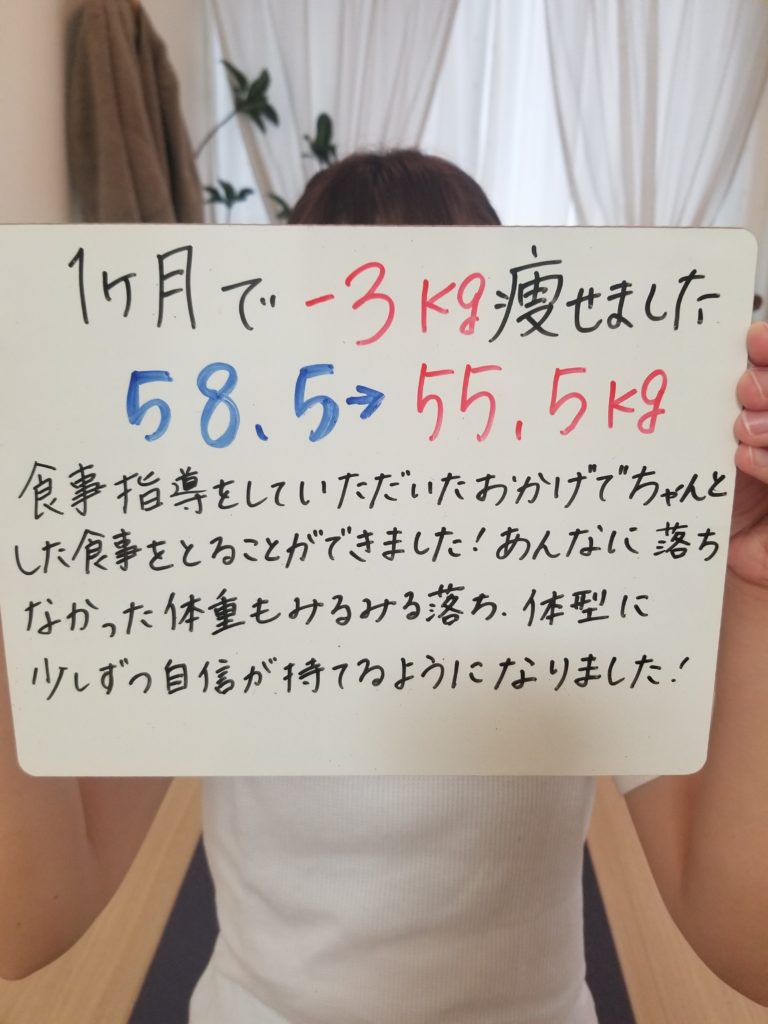 1ヶ月で-3kg痩せました
58.5→55.5kg
食事指導をしていただいたおかげでちゃんと
した食事をとることができました！あんなに落ち
なかった体重もみるみる落ち、体型に
少しずつ自信が持てるようになりました！